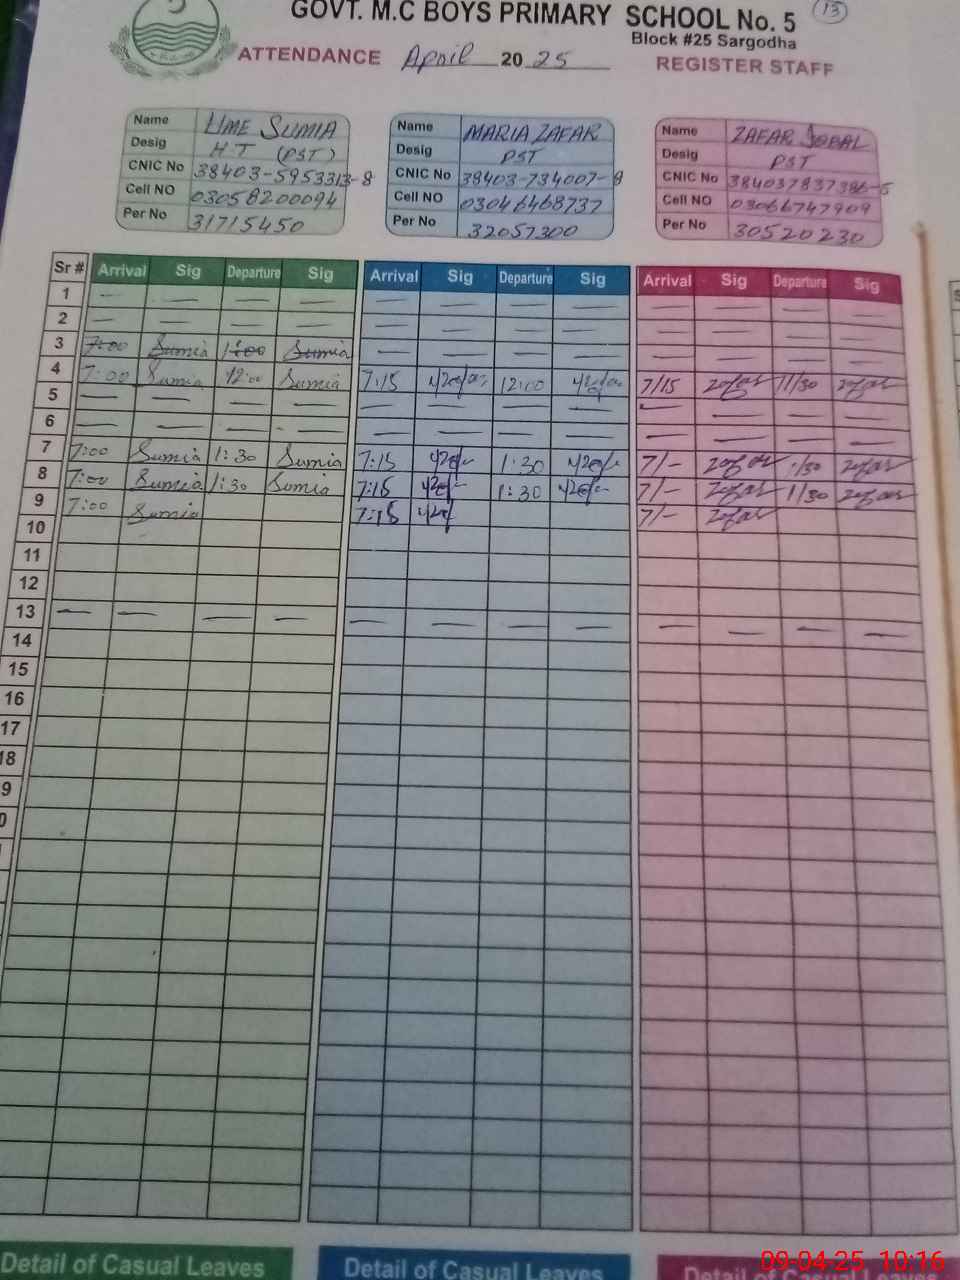 GOVT. M.C BOYS PRIMARY SCHOOL No. 5 13
Block #25 Sargodha
ATTENDANCE April 20 25 REGISTER STAFF
Name UME SUMIA
Desig H T (PST)
CNIC No 38403-5953313-8
Cell NO 03058200094
Per No 31715450
Name MARIA ZAFAR
Desig PST
CNIC No 38403-734007-8
Cell NO 03046468737
Per No 32057300
Name ZAFAR IQBAL
Desig PST
CNIC No 384037837386-5
Cell NO 03066747909
Per No 30520230
Sr # Arrival Sig Departure Sig Arrival Sig Departure Sig Arrival Sig Departure Sig
1 — — — — — — — — — — — —
2 — — — — — — — — — — — —
3 7:00 Sumia 1:00 Sumia — — — — — — — —
4 7:00 Sumia 12:00 Sumia 7:15 12:00 7/15 zafar 11/30 zafar
5 — — — — — — — — — — — —
6 — — — — — — — — — — — —
7 7:00 Sumia 1:30 Sumia 7:15 1:30 7/- zafar 1/30 zafar
8 7:00 Sumia 1:30 Sumia 7:15 1:30 7/- zafar 1/30 zafar
9 7:00 Sumia 7:15 7/- zafar
10
11
12
13 — — — — — — — — — — — —
14
15
16
17
18
9
0
Detail of Casual Leaves Detail of Casual Leaves Detail of
09-04-25 10:16